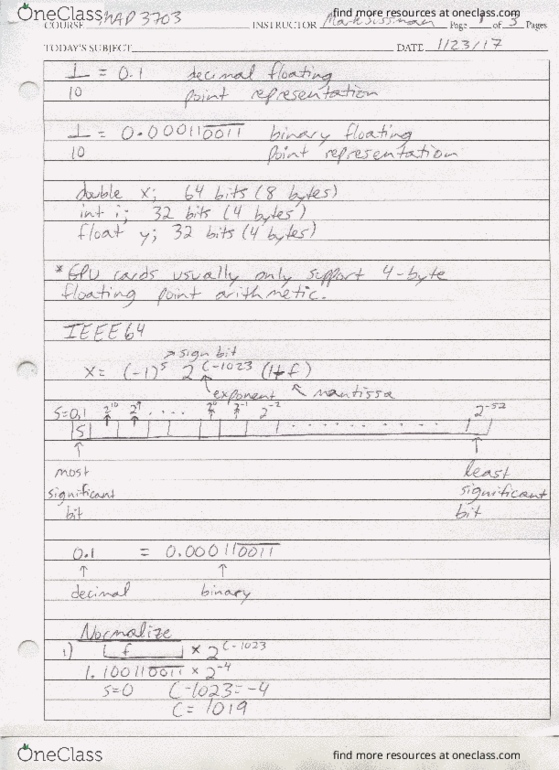 OneClass find more resources at oneclass.com
COURSE MAD 3703 INSTRUCTOR Mark Sussman Page 1 of 3 Pages
TODAY'S SUBJECT DATE 1/23/17
1/10 = 0.1 decimal floating
point representation
1/10 = 0.000110̅0̅1̅1̅ binary floating
point representation
double x; 64 bits (8 bytes)
int i; 32 bits (4 bytes)
float y; 32 bits (4 bytes)
*GPU cards usually only support 4-byte
floating point arithmetic.
IEEE64
sign bit
x = (-1)^s 2^(C-1023) (1+f)
exponent mantissa
S=0,1 2^10 2^9 .... 2^0 2^-1 2^-2 2^-52
S
most least
significant significant
bit bit
0.1 = 0.000110̅0̅1̅1̅
decimal binary
Normalize
1) 1.f × 2^(C-1023)
1.100110̅0̅1̅1̅ × 2^-4
s=0 C-1023=-4
C=1019
OneClass find more resources at oneclass.com